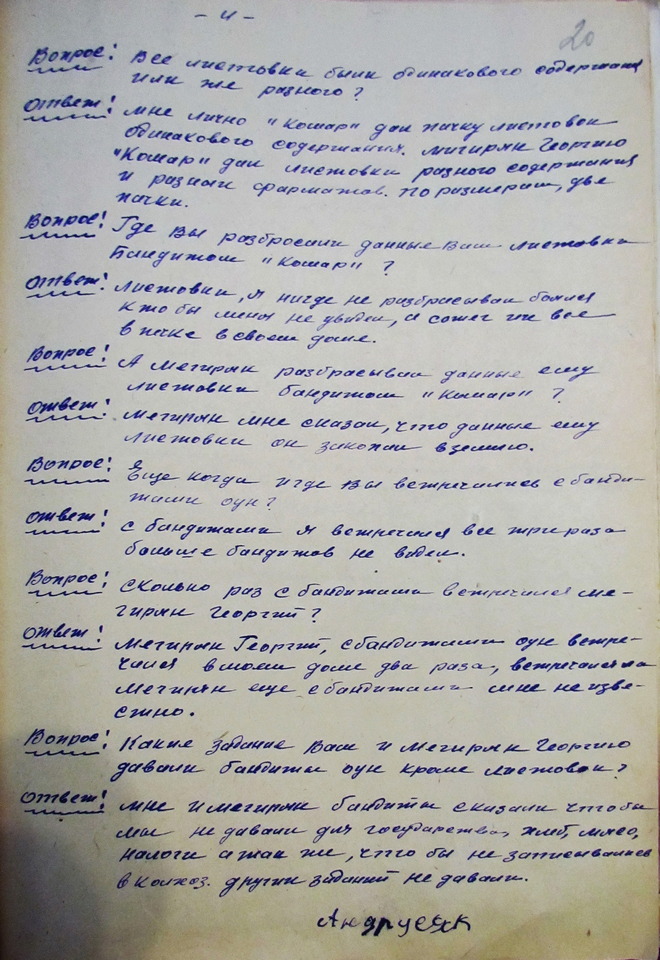 - 4 -
20
Вопрос! Все листовки были одинакового содержания
или же разного?
Ответ! Мне лично "Комар" дал пачку листовок
одинакового содержания. Мигирян Георгию
"Комар" дал листовки разного содержания
и разных форматов. По размерам, две
пачки.
Вопрос! Где Вы разбросали данные Вам листовки
бандитом "Комар"?
Ответ! Листовки, я нигде не разбрасывал боялся
кто бы меня не увидел, и сожег их все
в печке в своем доме.
Вопрос! А Мегирян разбрасывал данные ему
листовки бандитом "Комар"?
Ответ! Мегирян мне сказал, что данные ему
листовки он закопал в землю.
Вопрос! Еще когда и где Вы встречались с банди-
тами оун?
Ответ! С бандитами я встречался все три раза
больше бандитов не видел.
Вопрос! Сколько раз с бандитами встречался Ме-
гирян Георгий?
Ответ! Мегирян Георгий, с бандитами оун встре-
чался в моем доме два раза, встречался ли
Мегирян еще с бандитами мне не изве-
стно.
Вопрос! Какие задание Вам и Мегирян Георгию
давали бандиты оун кроме листовок?
Ответ! Мне и Мегирян бандиты сказали что бы
мы не давали для государства, хлеб, мясо,
налоги а так же, что бы не записывались
в колхоз. других заданий не давали.